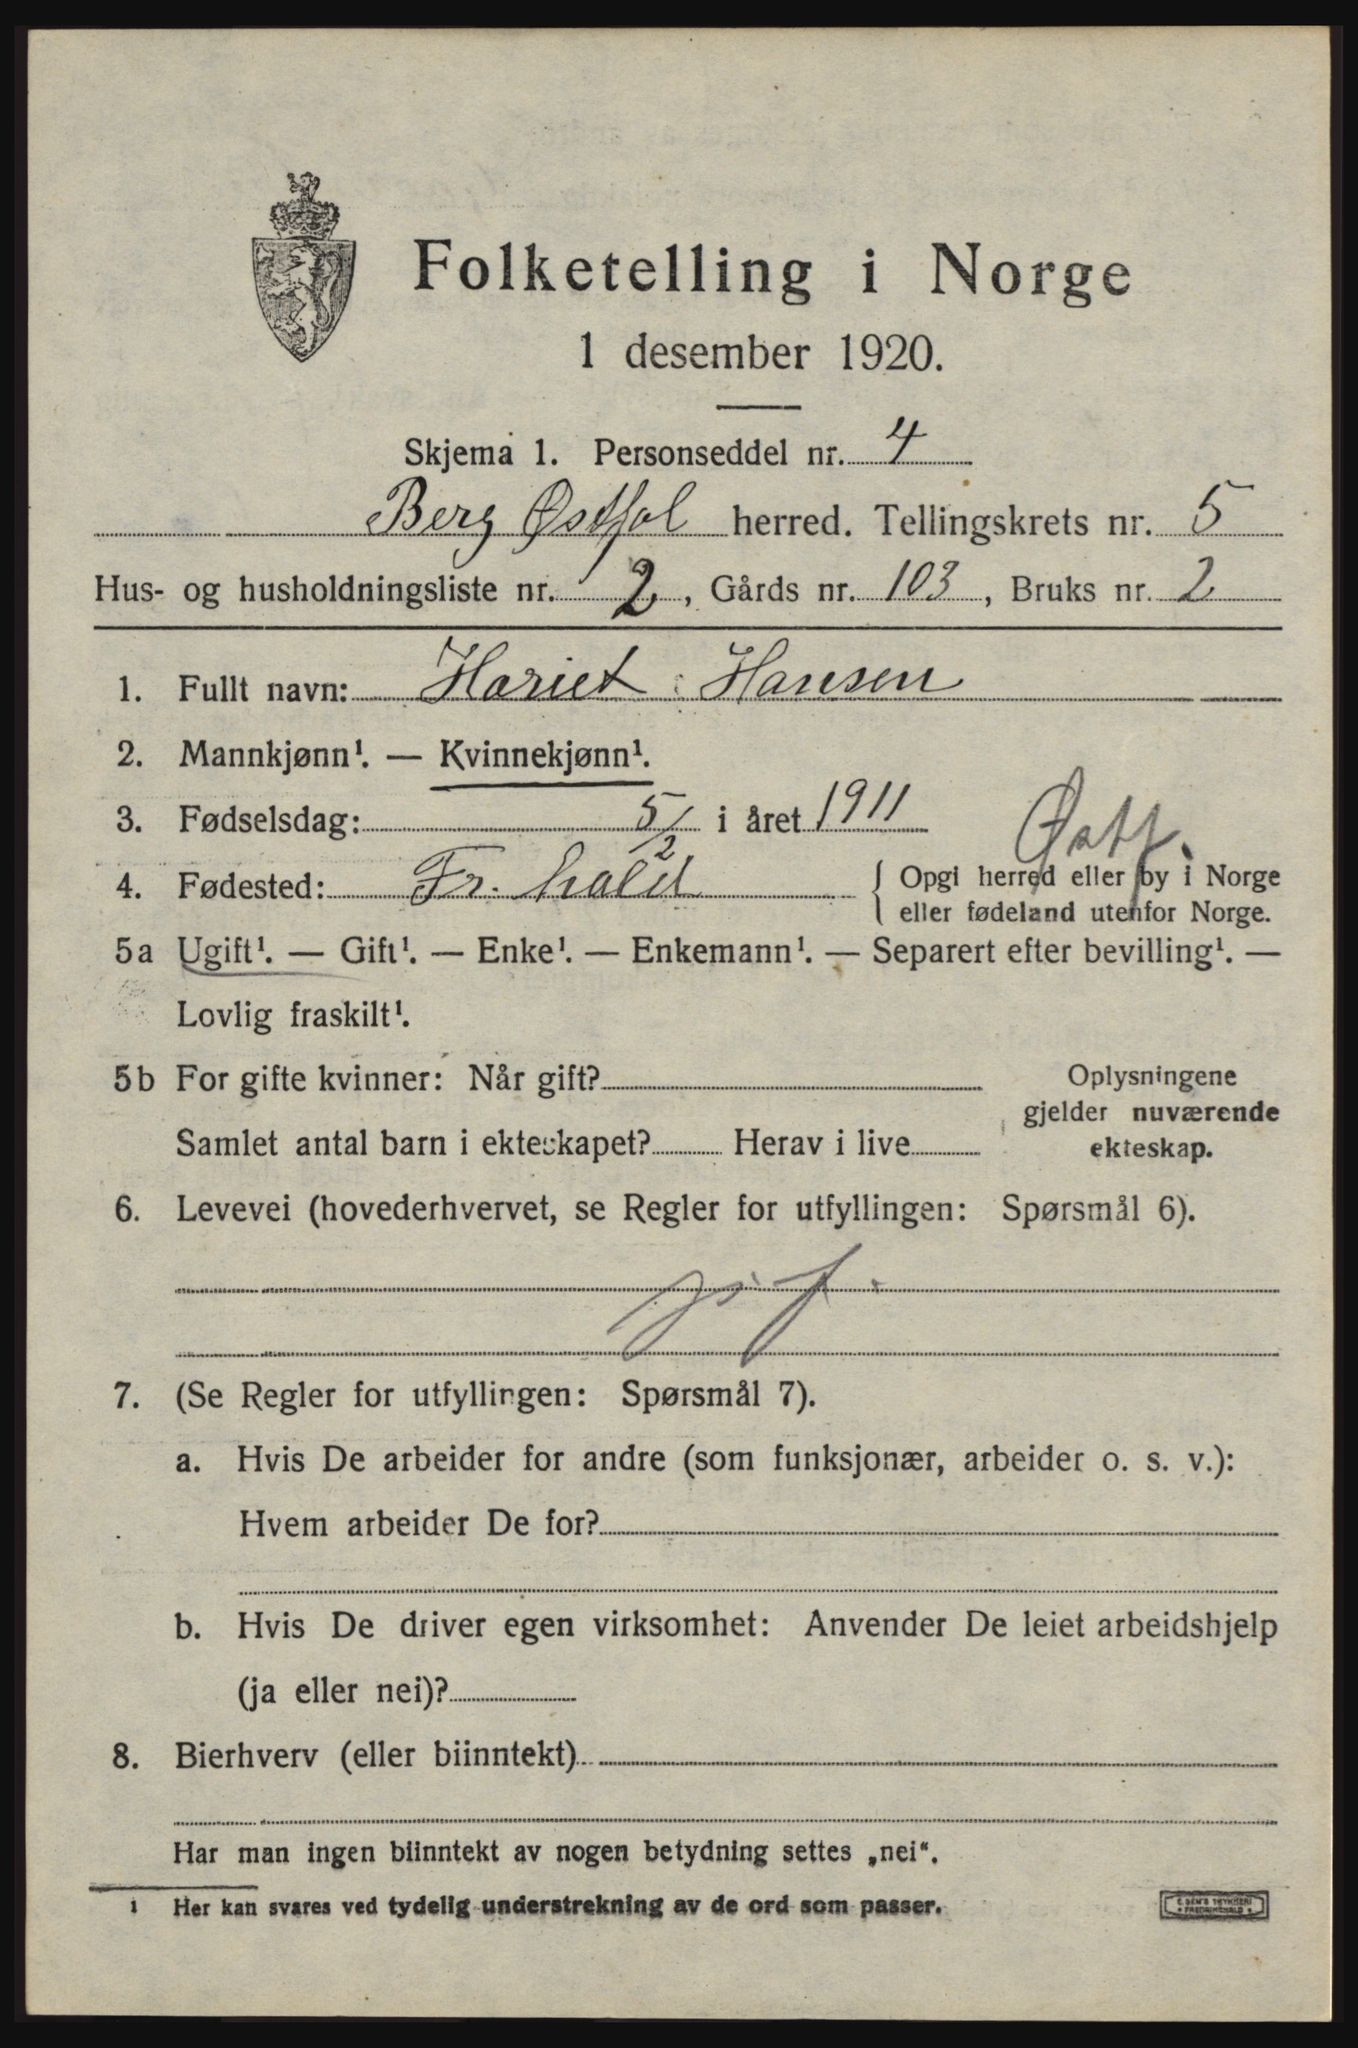 Folketelling i Norge
1 desember 1920.
Skjema 1. Personseddel nr. 4
Berg Østfol herred. Tellingskrets nr. 5
Hus- og husholdningsliste nr. 2, Gårds nr. 103, Bruks nr. 2
1. Fullt navn: Hariet Hansen
2. Mannkjønn¹. — Kvinnekjønn¹.
3. Fødselsdag: 5/2 i året 1911
Østf.
4. Fødested: Fr.hald { Opgi herred eller by i Norge
eller fødeland utenfor Norge.
5a Ugift¹. — Gift¹. — Enke¹. — Enkemann¹. — Separert efter bevilling¹. —
Lovlig fraskilt¹.
5b For gifte kvinner: Når gift? Oplysningene
gjelder nuværende
Samlet antal barn i ekteskapet? Herav i live ekteskap.
6. Levevei (hovederhvervet, se Regler for utfyllingen: Spørsmål 6).
7. (Se Regler for utfyllingen: Spørsmål 7).
a. Hvis De arbeider for andre (som funksjonær, arbeider o. s. v.):
Hvem arbeider De for?
b. Hvis De driver egen virksomhet: Anvender De leiet arbeidshjelp
(ja eller nei)?
8. Bierhverv (eller biinntekt)
Har man ingen biinntekt av nogen betydning settes „nei“.
1 Her kan svares ved tydelig understrekning av de ord som passer.